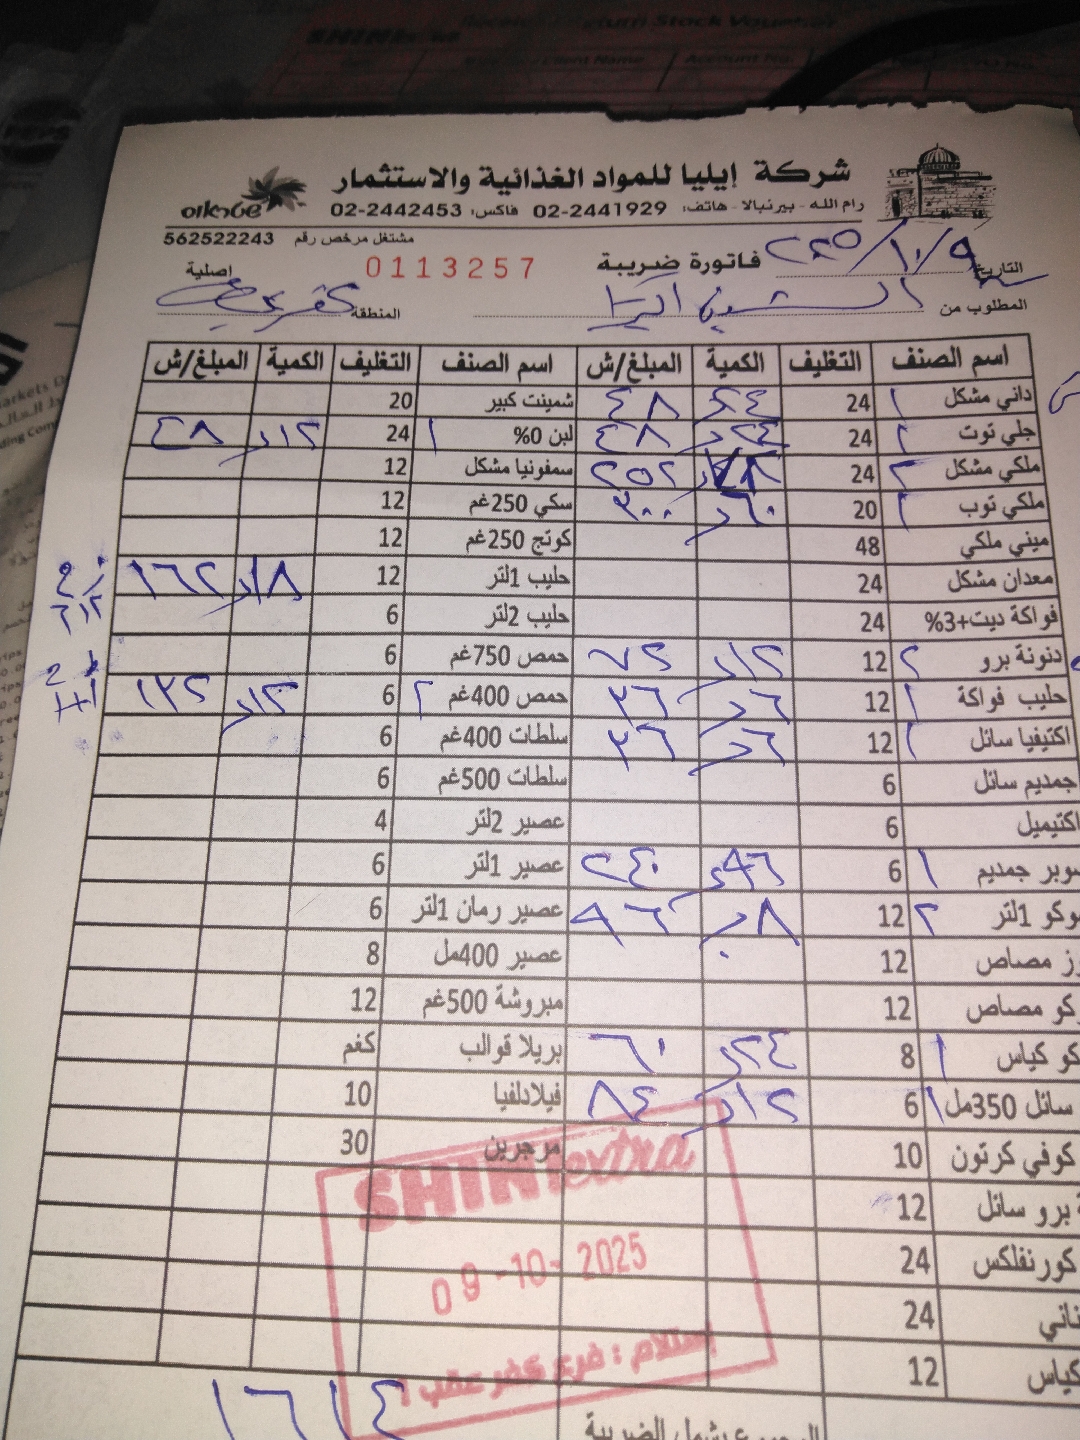 شركة إيليا للمواد الغذائية والاستثمار
رام الله - بيرنبالا - هاتف: 02-2441929 فاكس: 02-2442453
مشتغل مرخص رقم 562522243
التاريخ ٩/١٠/٢٠٢٥ فاتورة ضريبة 0113257 اصلية
المطلوب من المنطقة كفر عقب
اسم الصنف التغليف الكمية المبلغ/ش اسم الصنف التغليف الكمية المبلغ/ش
داني مشكل ١ 24 ٢٤ ٤٨ شمينت كبير 20
جلي توت ١ 24 ٢٤ ٤٨ لبن 0% ١ 24 ١٢ ٤٨
ملكي مشكل ٢ 24 ٢٥٢ سمفونيا مشكل 12
ملكي توب ١ 20 ٦٠ ٣٠٠ سكي 250غم 12
ميني ملكي 48 كوتج 250غم 12
معدان مشكل 24 حليب 1لتر 12 ١٨ ١٦٢
فواكة ديت+3% 24 حليب 2لتر 6
دنونة برو ٢ 12 ١٢ ٧٢ حمص 750غم 6
حليب فواكة ١ 12 ٦ ٣٦ حمص 400غم ٢ 6 ١٢ ١٣٢
اكتيفيا سائل ١ 12 ٦ ٣٦ سلطات 400غم 6
جمديم سائل 6 سلطات 500غم 6
اكتيميل 6 عصير 2لتر 4
سوبر جمديم ١ 6 ٩٦ ٢٤٠ عصير 1لتر 6
وكو 1لتر ٢ 12 ٨ ٩٦ عصير رمان 1لتر 6
وز مصاص 12 عصير 400مل 8
كو مصاص 12 مبروشة 500غم 12
كو كياس ١ 8 ٢٤ ٦٠ بريلا قوالب كغم
سائل 350مل ١ 6 ١٢ ٨٤ فيلادلفيا 10
كوفي كرتون 10 مرجرين 30
برو سائل 12
كورنفلكس 24
ناني 24
كياس 12
SHINI extra
09-10-2025
إستلام : فرع كفر عقب 1
المجموع يشمل الضريبة ١٦١٤